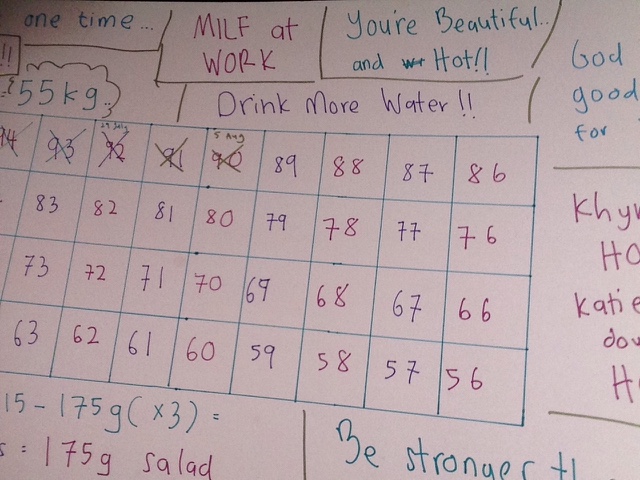 one time...
MILF at
WORK
You're Beautiful..
and Hot!!
God
good
for
!!
55kg
Drink More Water!!
94 93 92 91 90 89 88 87 86
29 July
5 Aug
83 82 81 80 79 78 77 76
73 72 71 70 69 68 67 66
63 62 61 60 59 58 57 56
HO
Katie
dow
H
15 - 175g (x3) =
s = 175g salad
Be stronger